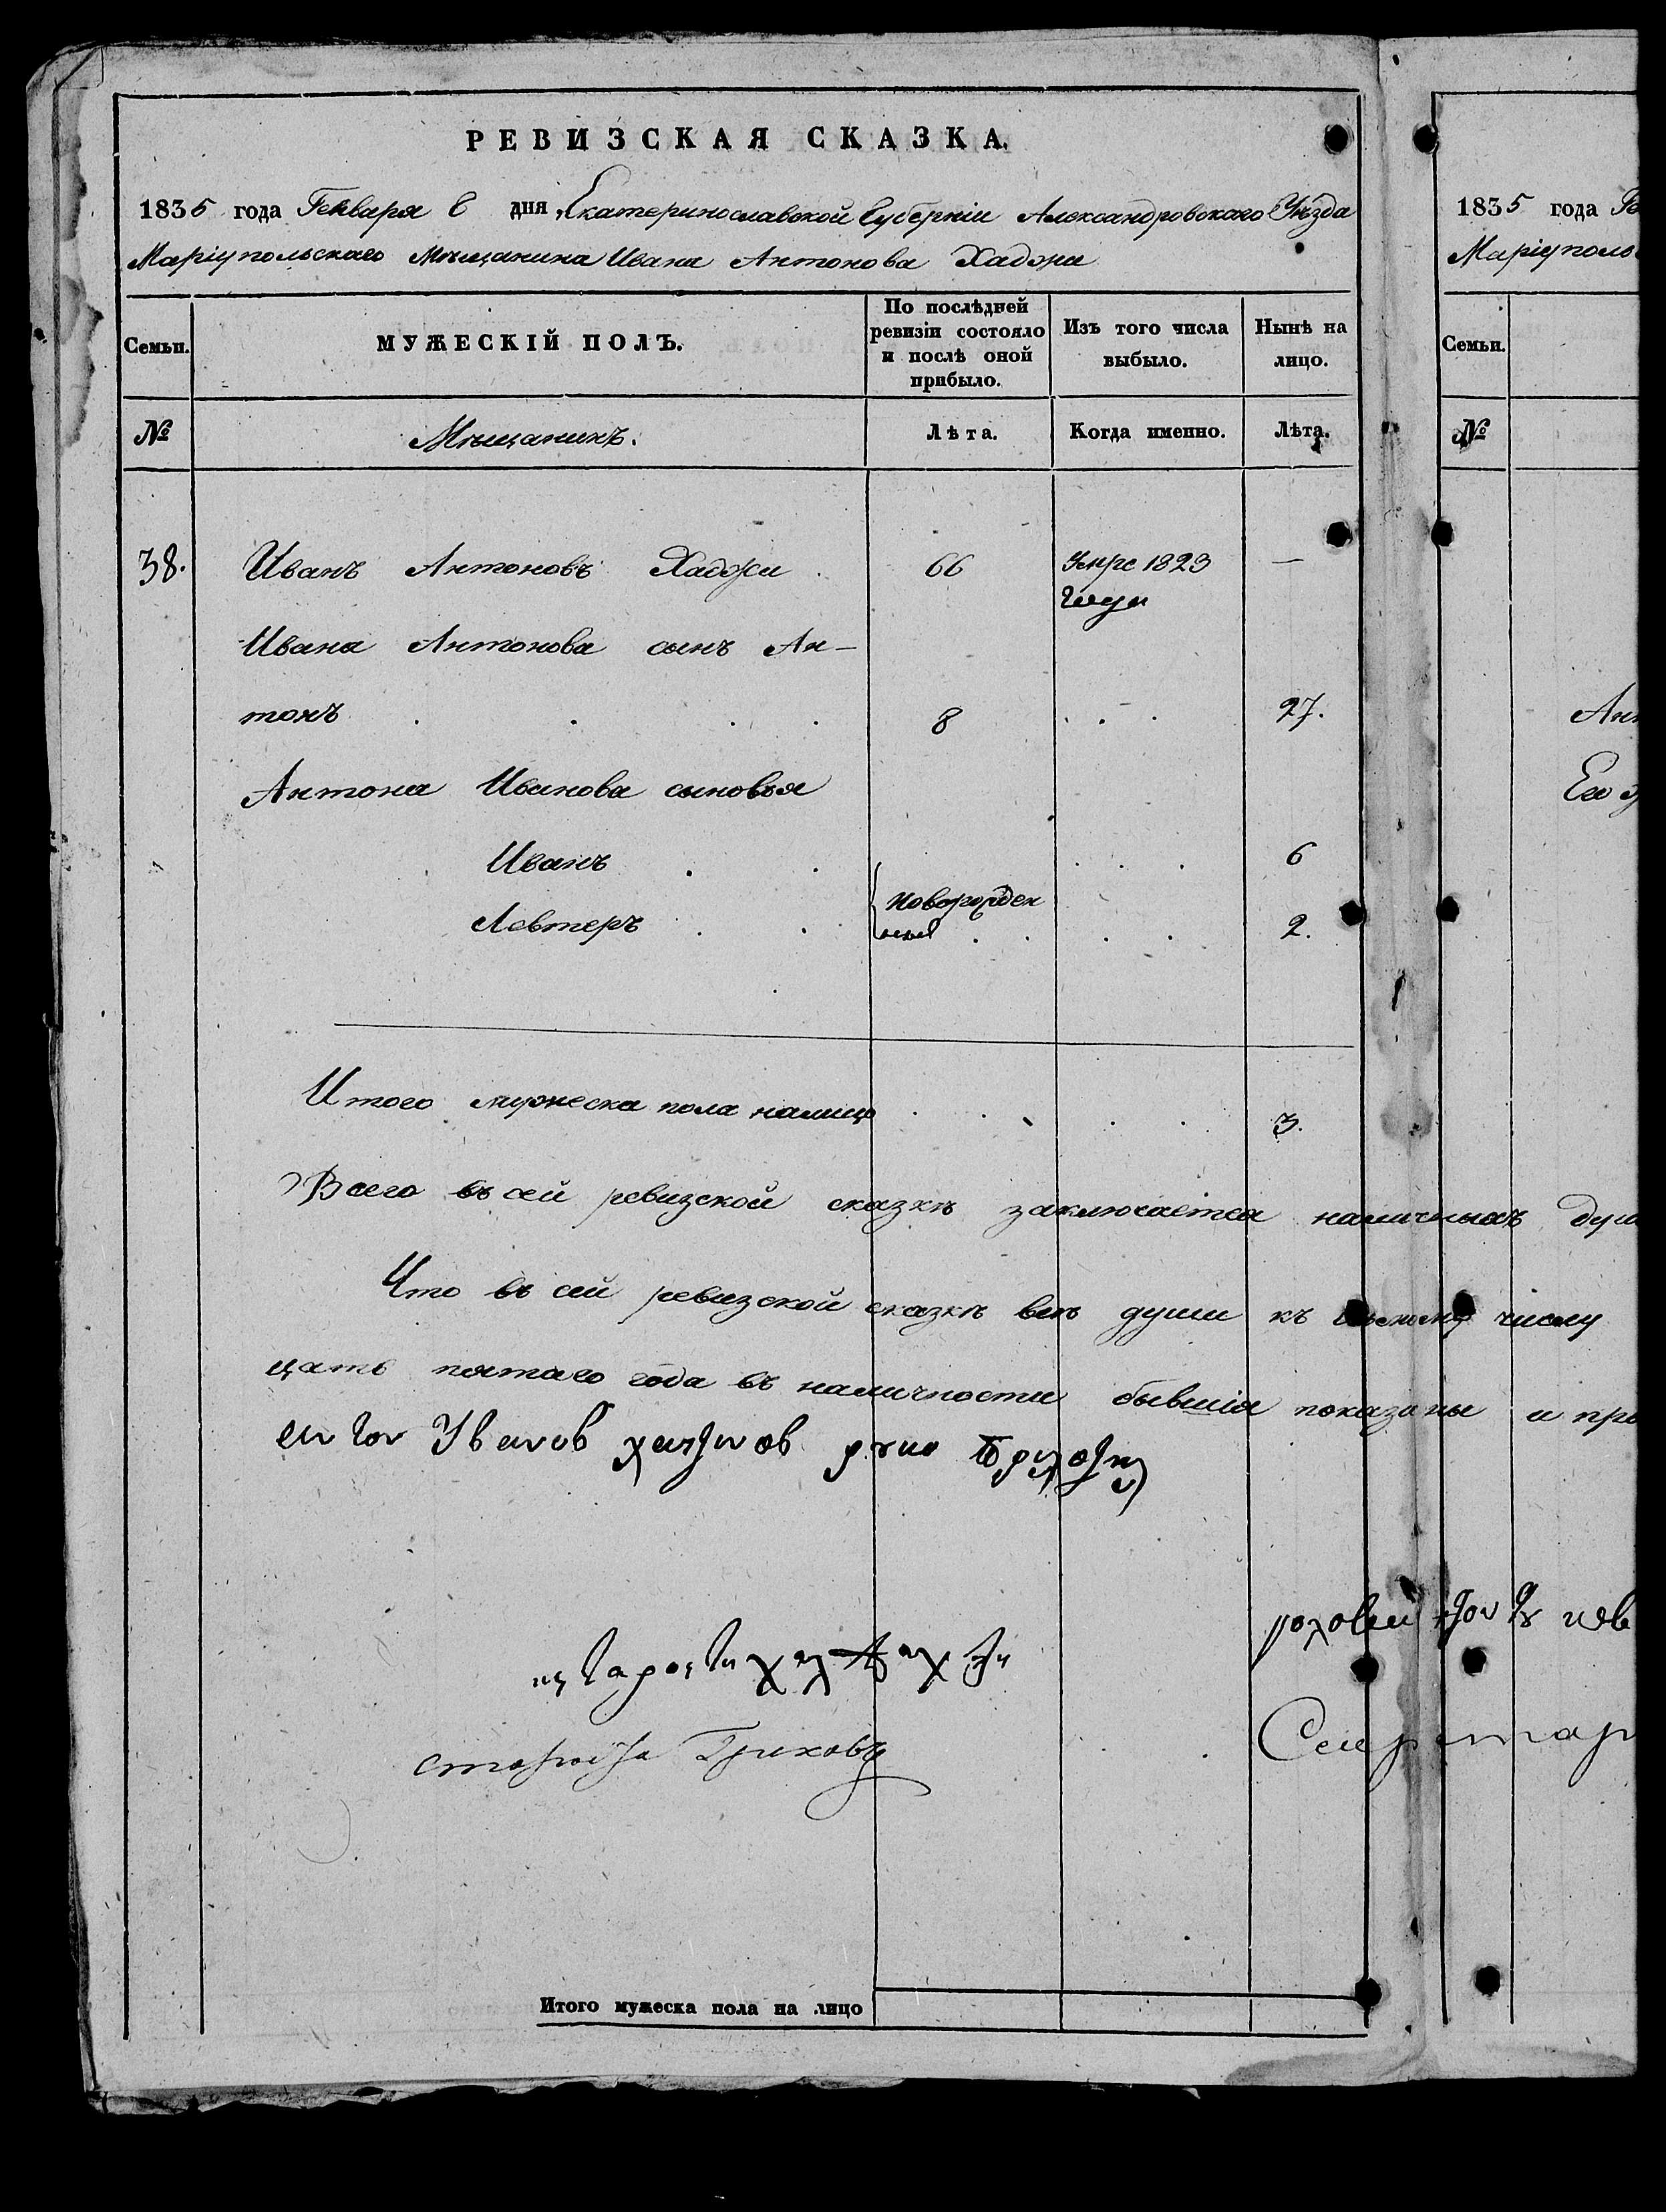 РЕВИЗСКАЯ СКАЗКА.
1835 года Генваря дня, Екатеринославской Губерніи Александровскаго Уѣзда
Маріупольскаго Мѣщанина Ивана Антонова Хаджи
Семьи. МУЖЕСКІЙ ПОЛЪ. По послѣдней ревизіи состояло и послѣ оной прибыло. Изъ того числа выбыло. Нынѣ на лицо.
№ Мѣщанинъ. Лѣта. Когда именно. Лѣта.
38. Иванъ Антоновъ Хаджи . 66 Умре 1823 —
года
Ивана Антонова сынъ Ан-
тонъ . . . . 8 . . 27.
Антона Иванова сыновья
Иванъ . . . . . 6
Новорожден
Левтеръ . . ные . . . . 2.
Итого мужеска пола налицо . . . . . 3.
Всего въ сей ревизской сказкѣ заключается наличныхъ душ
Что въ сей ревизской сказкѣ всѣ души къ числу
цать пятаго года въ наличности бывшія показаны и пр
Итого мужеска пола на лицо
1835 года
Маріуполь
Семьи.
№
Ан
Его